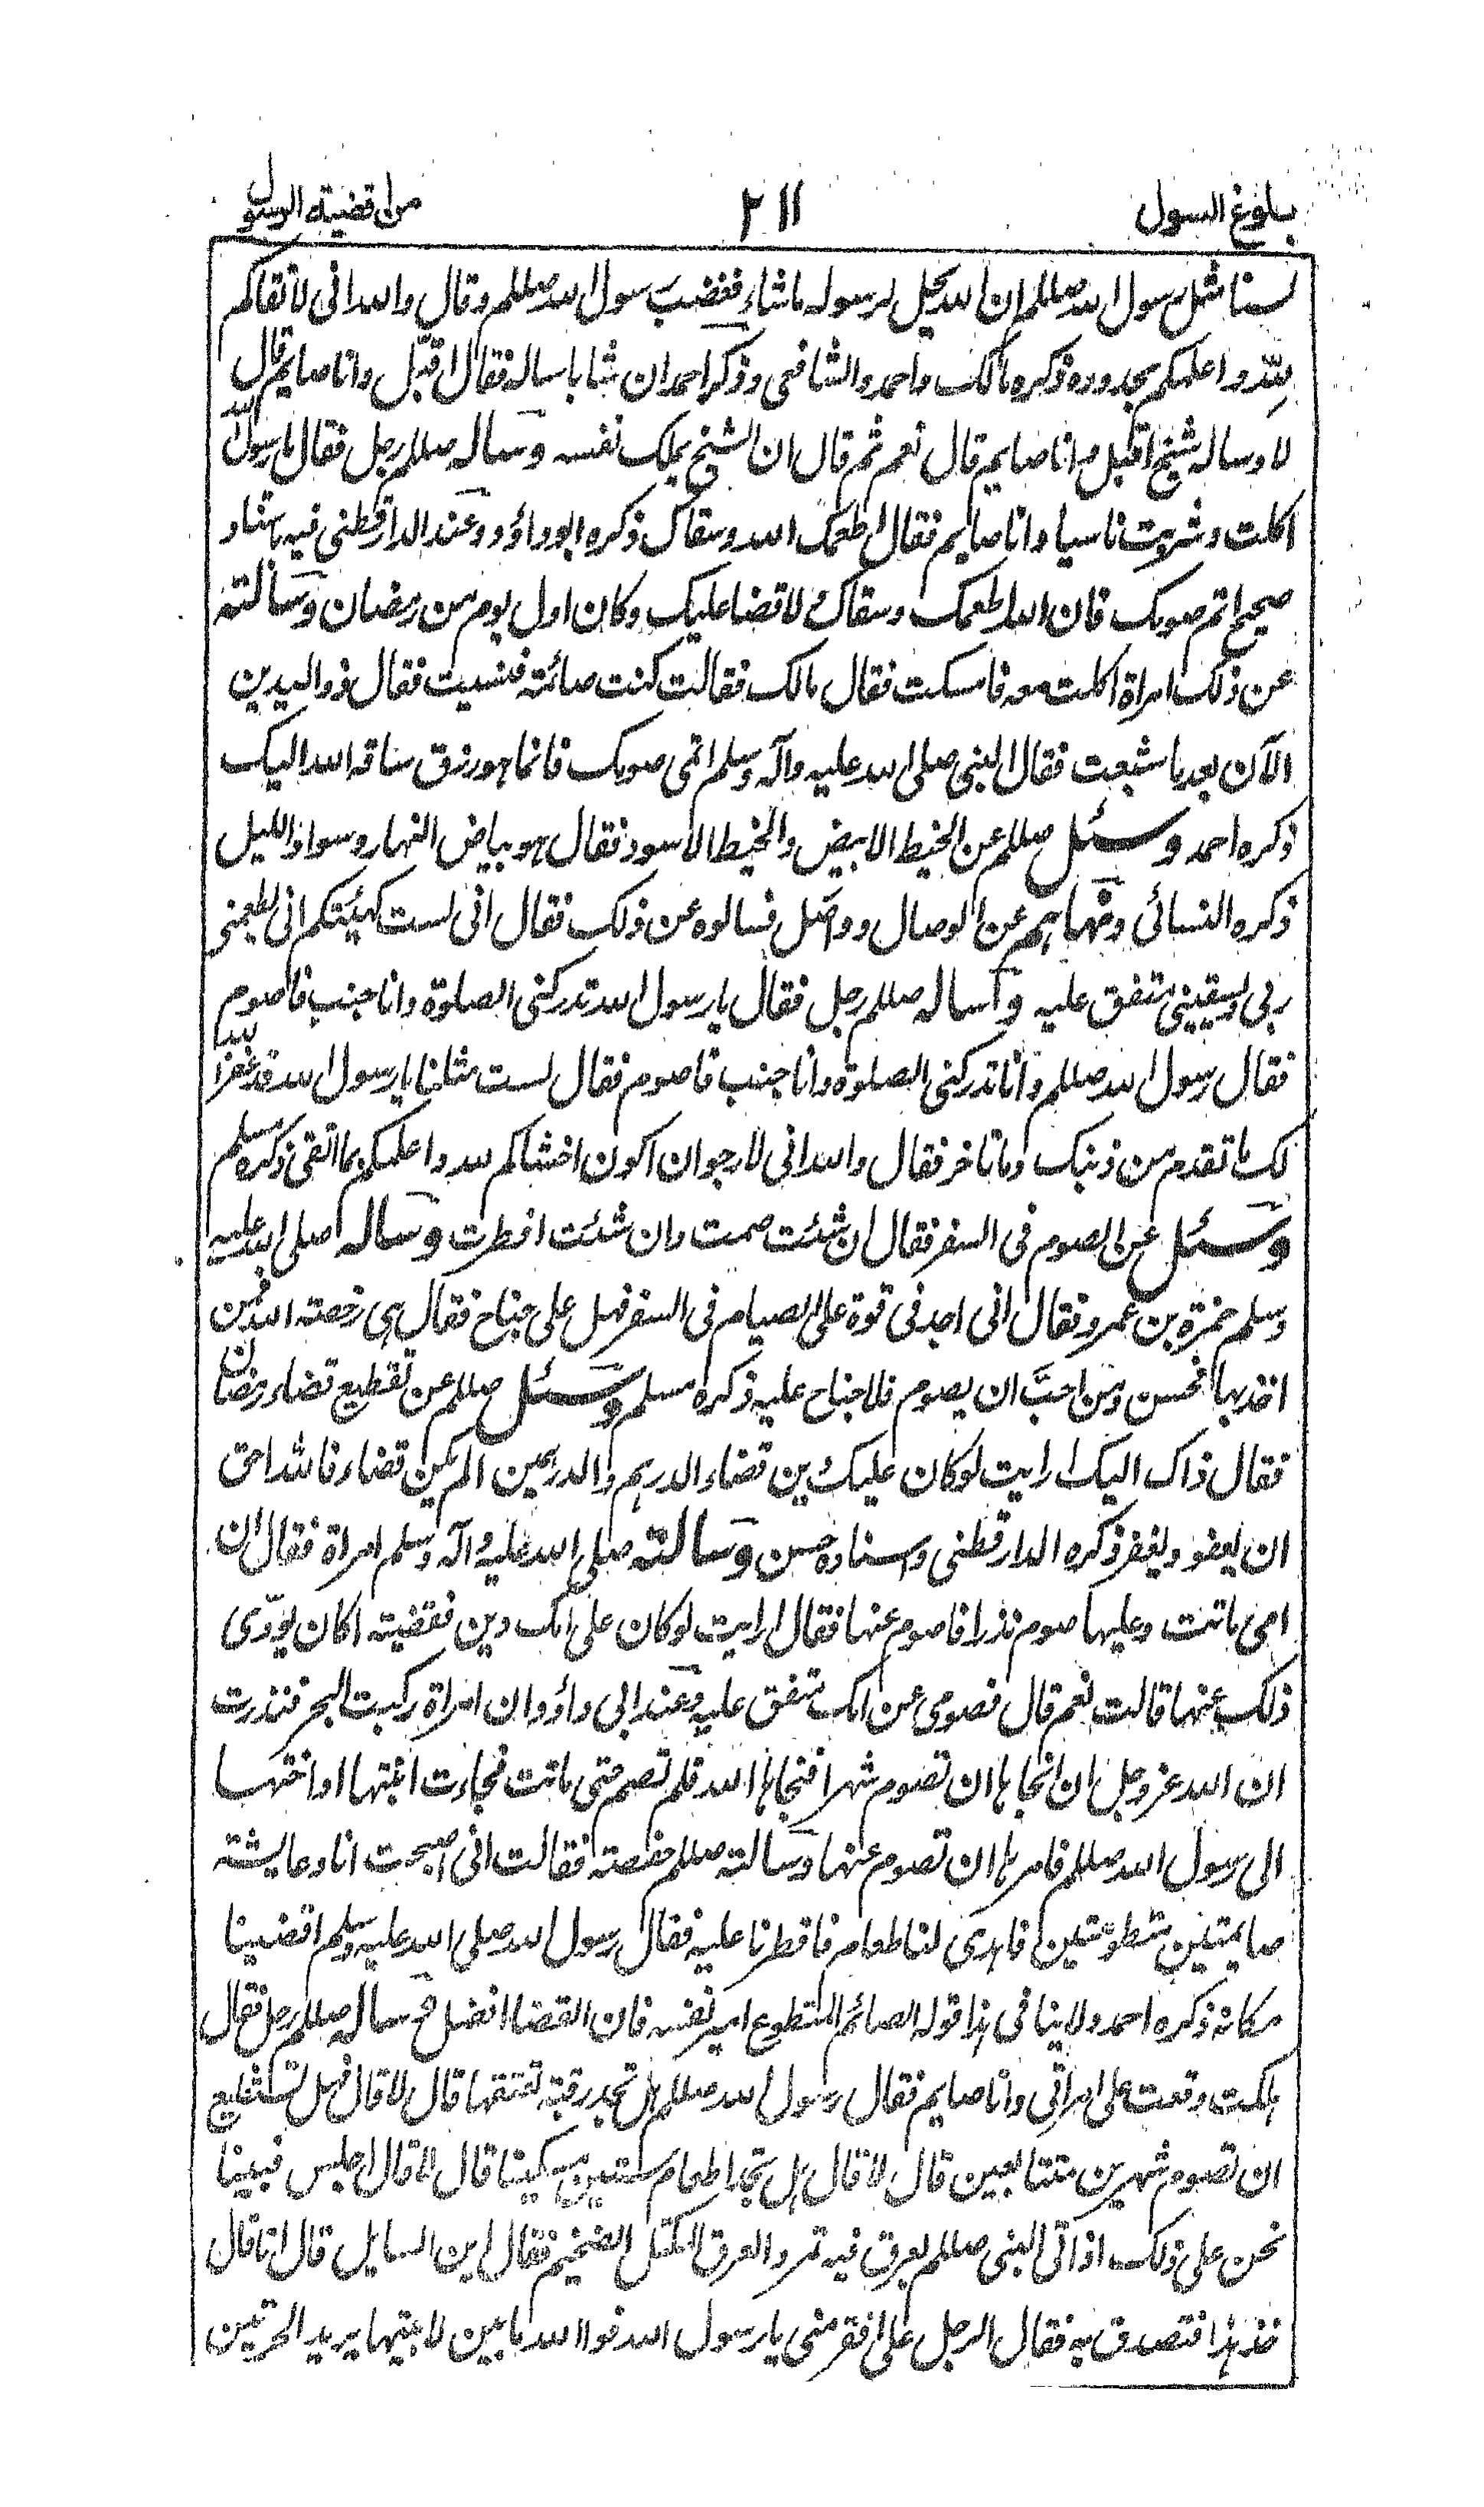 بلوغ السول ٢١١ من اقضية الرسول
لسنا مثل رسول الله صللم ان الله يحل لرسوله ما شاء فغضب رسول الله صللم وقال والله اني لاتقاكم
لله واعلمكم بحدوده ذكره مالك واحمد والشافعي وذكر احمد ان شابا ساله فقال اقبّل وانا صايم قال
لا وساله شيخ اقبل وانا صايم قال نعم ثم قال ان الشيخ يملك نفسه وساله صللم رجل فقال يا رسول الله
اكلت وشربت ناسيا وانا صايم فقال اطعمك الله وسقاك ذكره ابو داؤد وعند الدارقطني فيه باسناد
صحيح اتم صومك فان الله اطعمك وسقاك ولا قضا عليك وكان اول يوم من رمضان وسالته
عن ذلك امراة اكلت معه فامسكت فقال مالك فقالت كنت صائمة فنسيت فقال ذو اليدين
الآن بعد ما شبعت فقال النبي صلى الله عليه وآله وسلم اتمي صومك فانما هو رزق ساقه الله اليك
ذكره احمد وسئل صللم عن الخيط الابيض والخيط الاسود فقال هو بياض النهار وسواد الليل
ذكره النسائي ونهاهم عن الوصال وواصل فسالوه عن ذلك فقال اني لست كهيئتكم اني يطعمني
ربي ويسقيني متفق عليه وساله صللم رجل فقال يا رسول الله تدركني الصلوة وانا جنب فاصوم
فقال رسول الله صللم وانا تدركني الصلوة وانا جنب فاصوم فقال لست مثلنا يا رسول الله قد غفر الله
لك ما تقدم من ذنبك وما تاخر فقال والله اني لارجو ان اكون اخشاكم لله واعلمكم بما اتقي ذكره مسلم
وسئل عن الصوم في السفر فقال ان شئت صمت وان شئت افطرت وساله صلى الله عليه
وسلم حمزة بن عمرو فقال اني اجد في قوة على الصيام في السفر فهل على جناح فقال هي رخصة الله فمن
اخذ بها فحسن ومن احبّ ان يصوم فلا جناح عليه ذكره مسلم وسئل صللم عن تقطيع قضاء رمضان
فقال ذاك اليك ارايت لو كان عليك دين قضاء الدرهم والدرهمين الم يكن قضاء فالله احق
ان يعفو ويغفر ذكره الدارقطني واسناده حسن وسالته صلى الله عليه وآله وسلم امراة فقال ان
امي ماتت وعليها صوم نذر افاصوم عنها فقال ارايت لو كان على امك دين فقضيته اكان يؤدّى
ذلك عنها قالت نعم قال فصومي عن امك متفق عليه وعند ابي داؤد ان امراة ركبت البحر فنذرت
ان الله عز وجل ان انجاها ان تصوم شهرا فنجاها الله فلم تصم حتى ماتت فجاءت ابنتها او اختها
الى رسول الله صللم فامرها ان تصوم عنها وسالته صللم حفصة فقالت اني اصبحت انا وعايشة
صايمتين متطوعتين فاهدي لنا طعام فافطرنا عليه فقال رسول الله صلى الله عليه وسلم اقضيا
مكانه ذكره احمد ولا ينافي هذا قوله الصائم المتطوع امير نفسه فان القضا افضل ح ساله صللم رجل فقال
هلكت وقعت على امراتي وانا صايم فقال رسول الله صللم هل تجد رقبة تعتقها قال لا قال فهل تستطيع
ان تصوم شهرين متتابعين قال لا قال هل تجد اطعام ستين مسكينا قال لا قال اجلس فبينا
نحن على ذلك اذ اتى النبي صللم بعرق فيه تمر والعرق المكتل الضخيم فقال اين السايل قال انا قال
خذ هذا فتصدق به فقال الرجل على افقر مني يا رسول الله فوا الله ما بين لابتيها يريد الحرتين